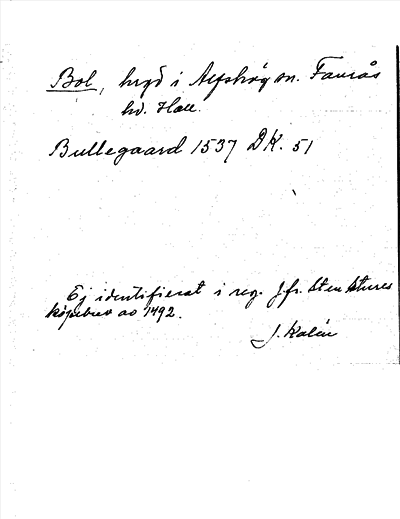 Bol, hrgd i Alfshög sn. Faurås
hd. Hall.
Bullegaard 1537 DK. 51
Ej identifierat i reg. Jfr. Sten Stures
köpebrev av 1492.
J. Kalén